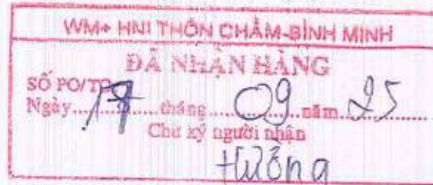 WM+ HNI THÔN CHẰM-BÌNH MINH
ĐÃ NHẬN HÀNG
SỐ PO/TO
Ngày 17 tháng 09 năm 25
Chữ ký người nhận
Hường